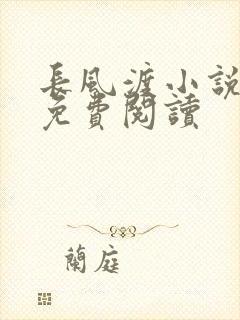 長風渡小說
免費閱讀
蘭庭